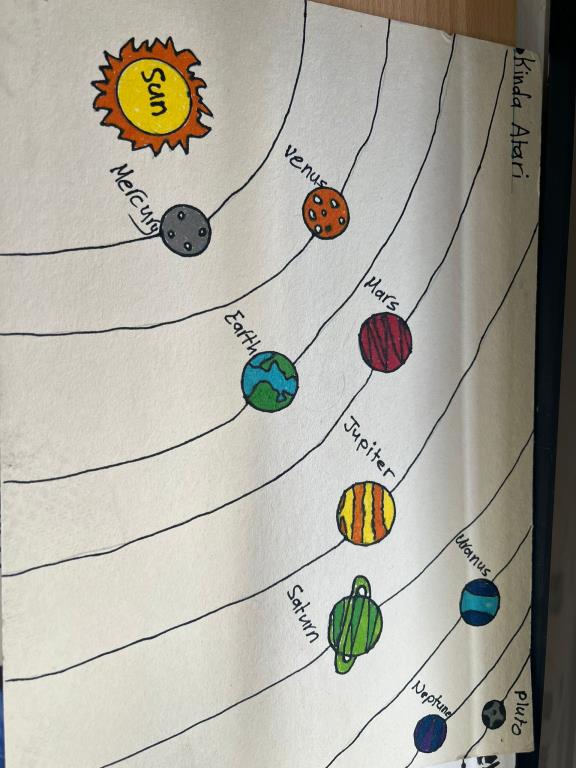 Kinda Atari
Sun
Mercury
Venus
Earth
Mars
Jupiter
Saturn
Uranus
Neptune
Pluto